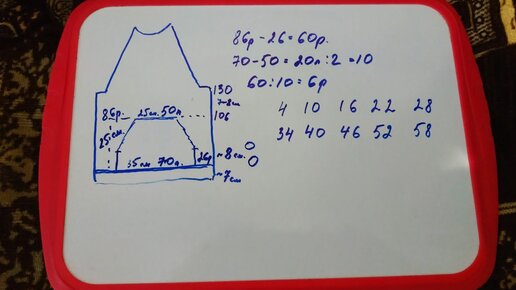 86р - 26 = 60р.
70 - 50 = 20п : 2 = 10
60 : 10 = 6р
4 10 16 22 28
34 40 46 52 58
130
7-8см
86р. 25см. 50п. 106
25см
35см 70п. 26р ~8см.
~7см